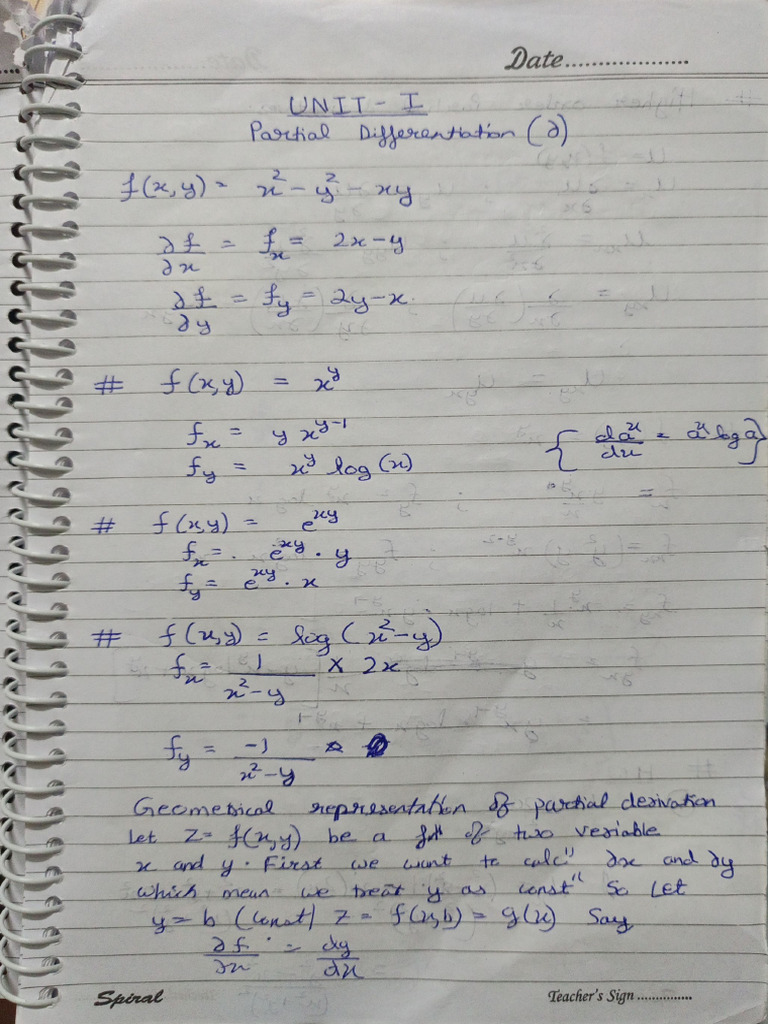 Date..................
UNIT - I
Partial Differentiation (∂)
f(x,y) = x² - y² - xy
∂f/∂x = fx = 2x - y
∂f/∂y = fy = 2y - x
# f(x,y) = x^y
fx = y x^(y-1) { da^x/dx = a^x log a }
fy = x^y log(x)
# f(x,y) = e^(xy)
fx = . e^(xy) . y
fy = e^(xy) . x
# f(x,y) = log(x² - y)
fx = 1/(x² - y) × 2x
fy = -1/(x² - y)
Geometrical representation of partial derivation
Let Z = f(x,y) be a fⁿ of two veriable
x and y. First we want to calcⁿ ∂x and ∂y
which mean we treat y as constⁿ So Let
y = b (const) Z = f(x,b) = g(x) Say
∂f/∂x = dg/dx
Spiral Teacher's Sign ...............